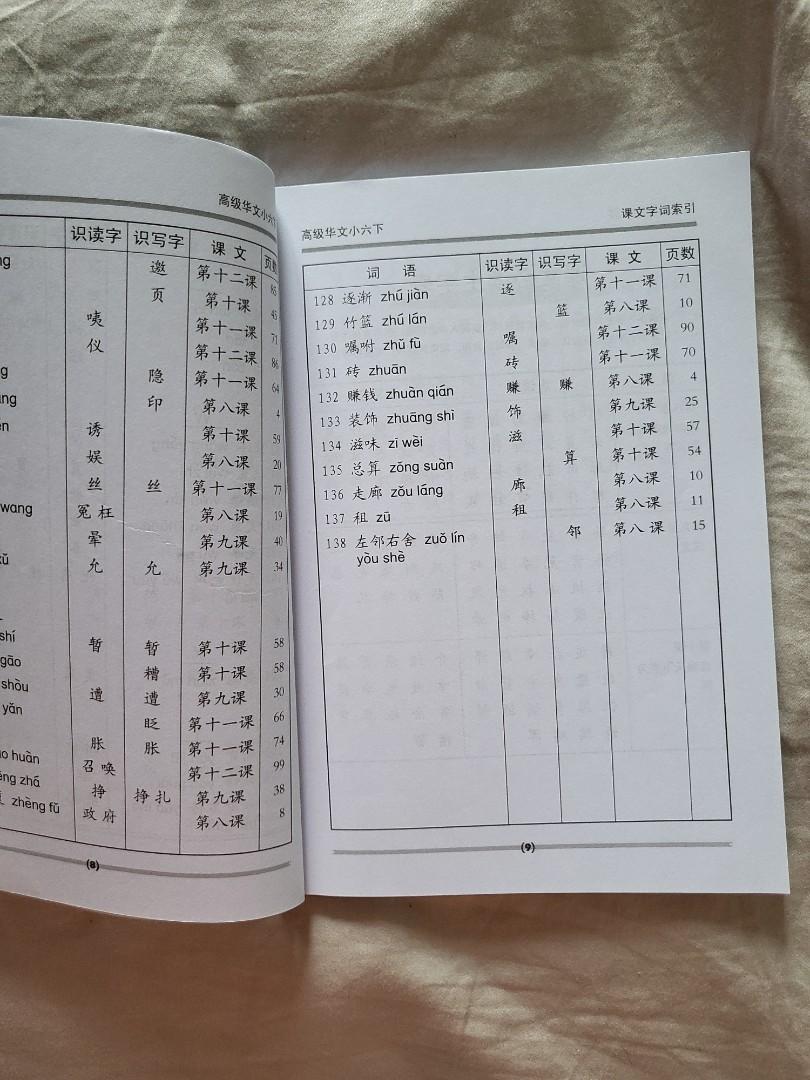 高级华文小六下
识读字 识写字 课文 页数
邀 第十二课 85
页 第十课 45
咦 第十一课 71
仪 第十二课 86
隐 第十一课 64
印 第八课 4
诱 第十课 59
娱 第八课 20
丝 丝 第十一课 77
wang 冤枉 第八课 19
晕 第九课 40
允 允 第九课 34
shí 暂 暂 第十课 58
gāo 糟 第十课 58
shòu 遭 遭 第九课 30
yǎn 眨 第十一课 66
胀 胀 第十一课 74
huàn 召唤 第十二课 99
zhá 挣 挣扎 第九课 38
zhèng fǔ 政府 第八课 8
(8)
高级华文小六下 课文字词索引
词语 识读字 识写字 课文 页数
128 逐渐 zhú jiàn 逐 第十一课 71
129 竹篮 zhú lán 篮 第八课 10
130 嘱咐 zhǔ fù 嘱 第十二课 90
131 砖 zhuān 砖 第十一课 70
132 赚钱 zhuàn qián 赚 赚 第八课 4
133 装饰 zhuāng shì 饰 第九课 25
134 滋味 zi wèi 滋 第十课 57
135 总算 zǒng suàn 算 第十课 54
136 走廊 zǒu láng 廊 第八课 10
137 租 zū 租 第八课 11
138 左邻右舍 zuǒ lín 邻 第八课 15
yòu shè
(9)